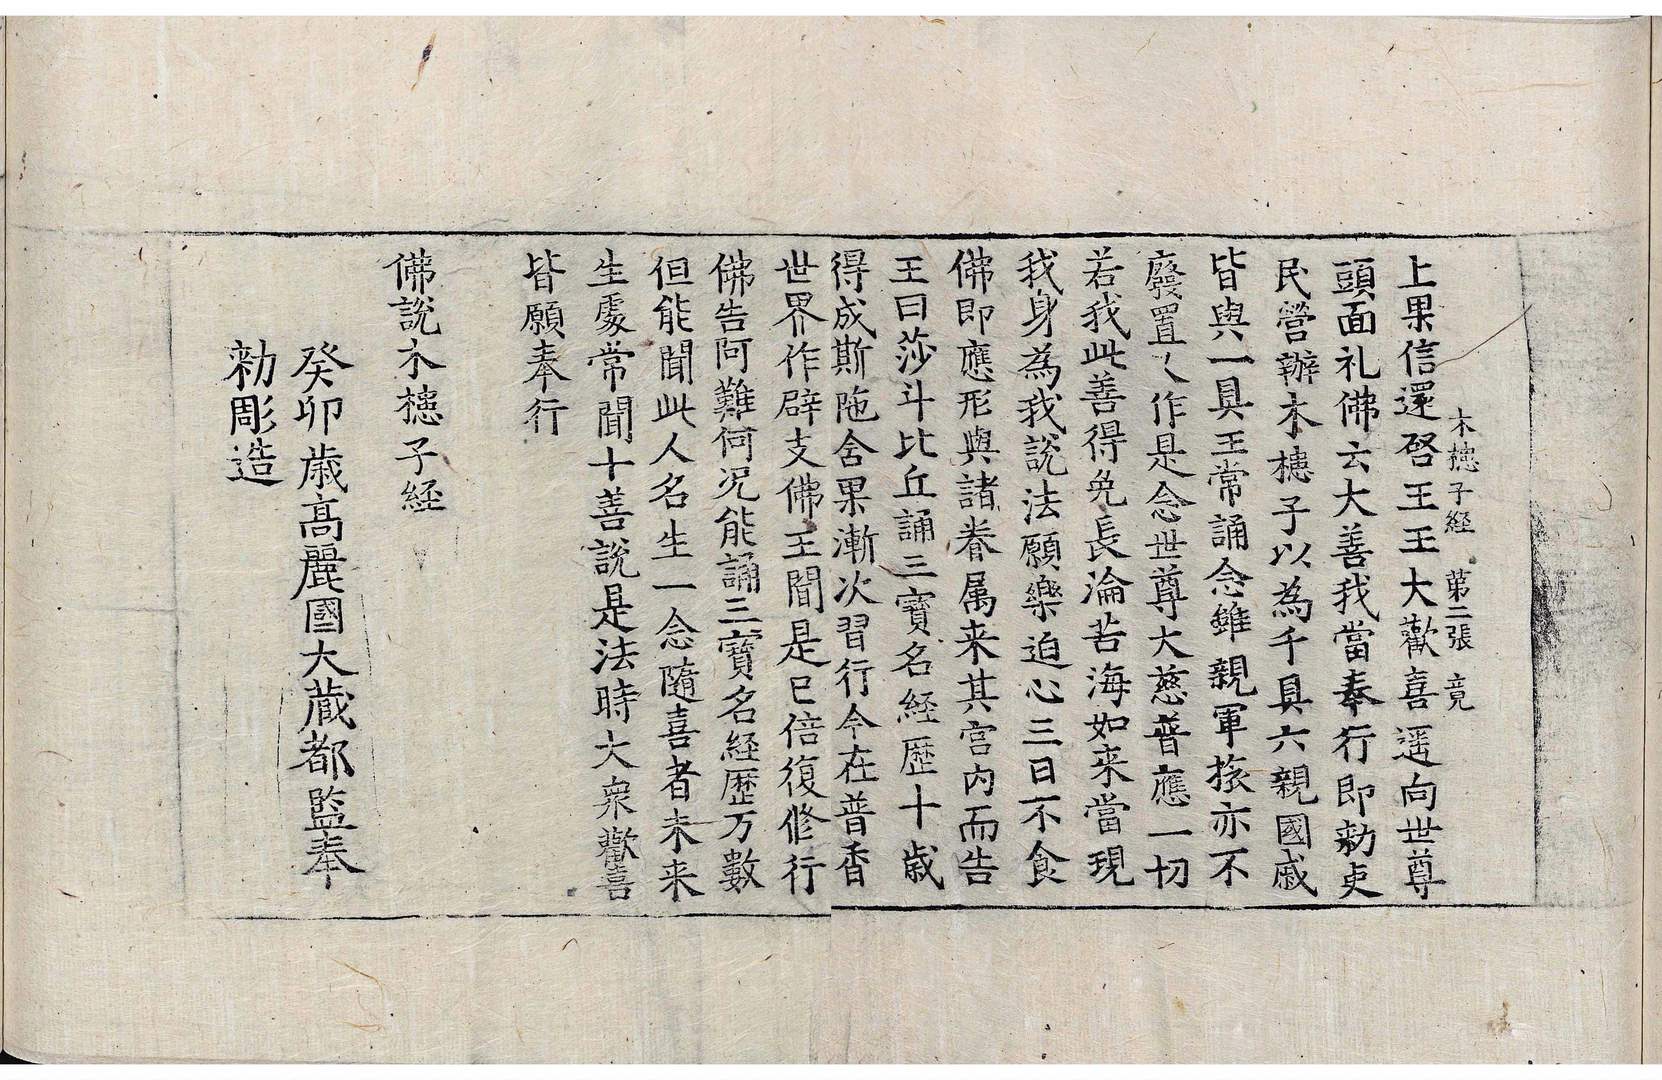 木槵子経 第二張 竟
上果信還啓王王大歡喜遥向世尊
頭面礼佛云大善我當奉行即勑吏
民營辦木槵子以為千具六親國戚
皆與一具王常誦念雖親軍旅亦不
癈置又作是念世尊大慈普應一切
若我此善得免長淪苦海如来當現
我身為我說法願樂迫心三日不食
佛即應形與諸眷属来其宫内而告
王曰莎斗比丘誦三寳名経歴十歳
得成斯陁含果漸次習行今在普香
世界作辟支佛王聞是已倍復修行
佛告阿難何况能誦三寳名経歴万數
但能聞此人名生一念隨喜者未来
生處常聞十善說是法時大衆歡喜
皆願奉行
佛說木槵子経
癸卯歳髙麗國大藏都監奉
勑彫造